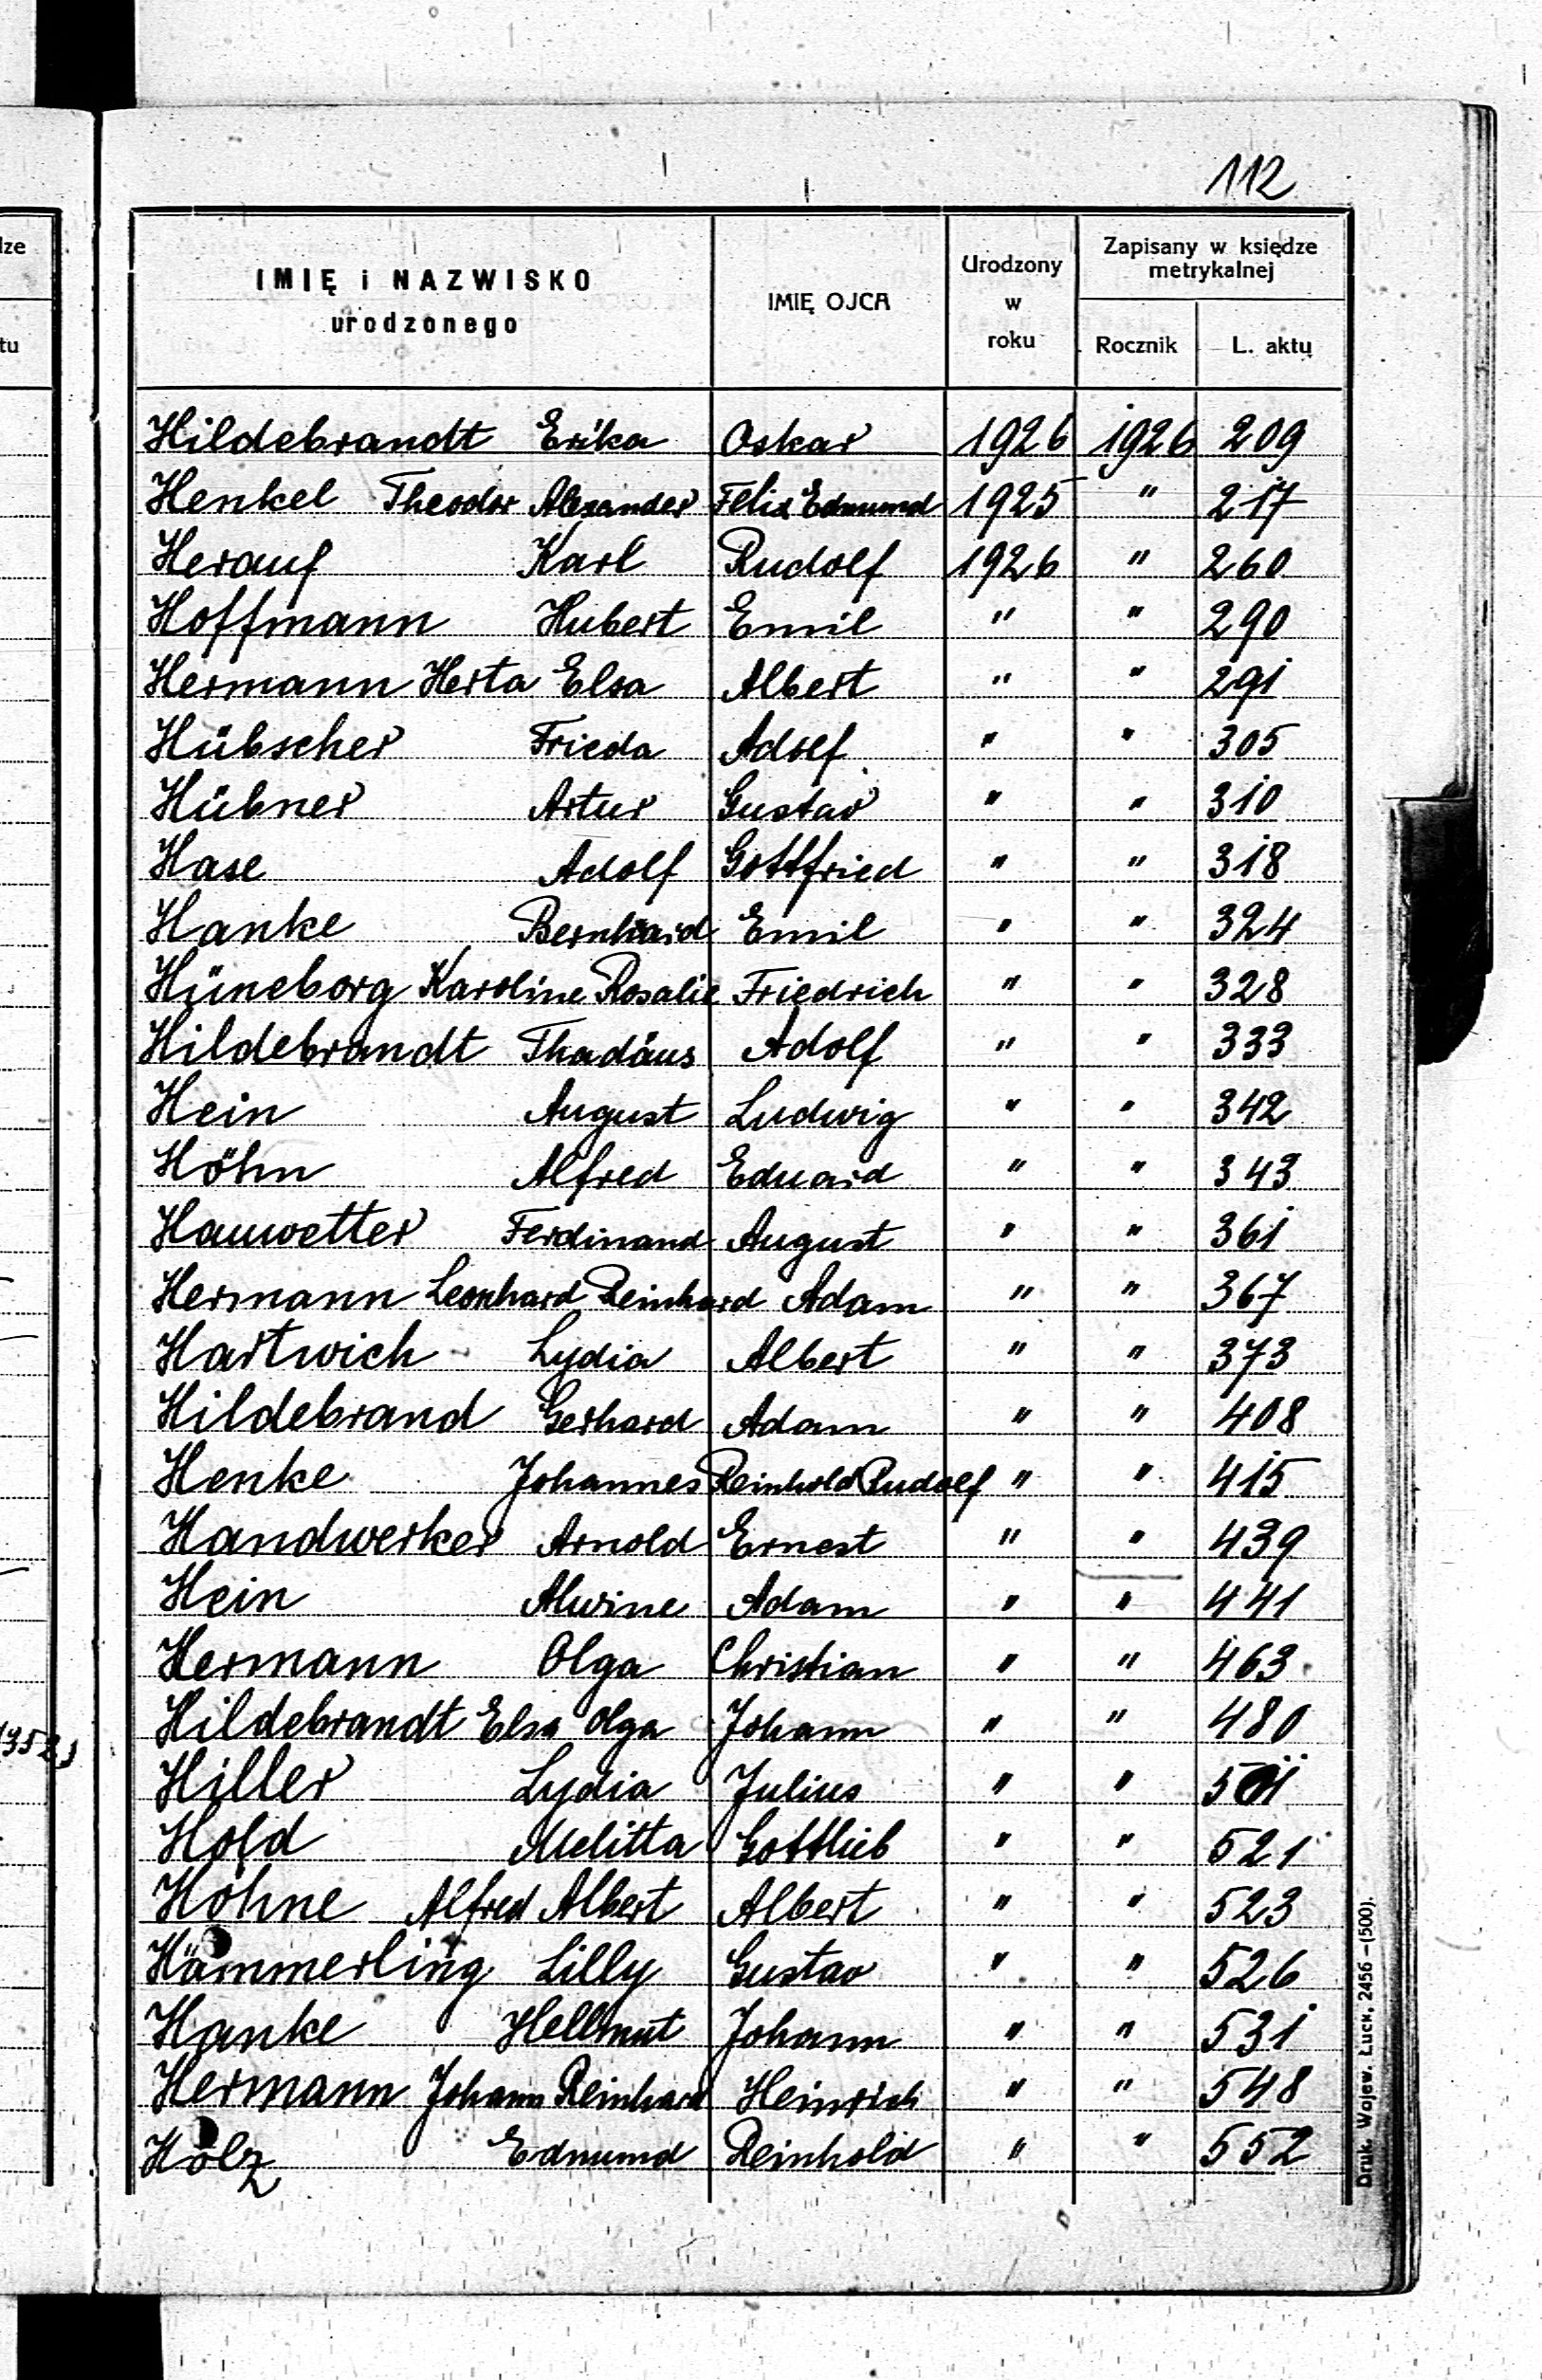 112
IMIĘ i NAZWISKO
urodzonego
IMIĘ OJCA
Urodzony
w
roku
Zapisany w księdze
metrykalnej
Rocznik
L. aktu
Hildebrandt Erika Oskar 1926 1926 209
Henkel Theodor Alexander Felix Edmund 1925 " 217
Herauf Karl Rudolf 1926 " 260
Hoffmann Hubert Emil " " 290
Hermann Herta Elsa Albert " " 291
Hübscher Frieda Adolf " " 305
Hübner Artur Gustav " " 310
Hase Adolf Gottfried " " 318
Hanke Bernhard Emil " " 324
Hüneborg Karoline Rosalie Friedrich " " 328
Hildebrandt Thadäus Adolf " " 333
Hein August Ludwig " " 342
Höhn Alfred Eduard " " 343
Hauwetter Ferdinand August " " 361
Hermann Leonhard Reinhard Adam " " 367
Hartwich Lydia Albert " " 373
Hildebrand Gerhard Adam " " 408
Henke Johannes Reinhold Rudolf " " 415
Handwerker Arnold Ernest " " 439
Hein Alwine Adam " " 441
Hermann Olga Christian " " 463
Hildebrandt Elsa Olga Johann " " 480
Hiller Lydia Julius " "
Hold Melitta Gottlieb " " 521
Höhne Alfred Albert Albert " " 523
Hämmerling Lilly Gustav " " 526
Hanke Hellmut Johann " " 531
Hermann Johann Reinhard Heinrich " " 548
Hölz Edmund Reinhold " " 552
Druk. Wojew. Łuck, 2456-(500).